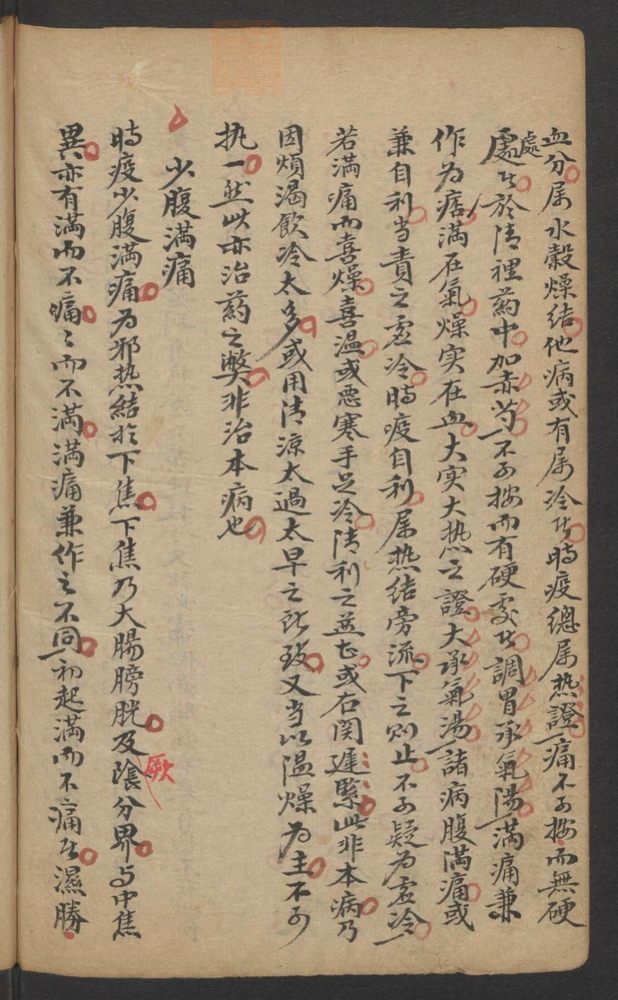 血分属水穀燥結他病或有属冷者時疫總属热證痛不可按而無硬
處者於清裡药中加赤芍不可按而有硬處者調胃承氣湯满痛兼
作为痞满在氣燥实在血大实大热之證大承氣湯諸病腹满痛或
兼自利当責之虚冷時疫自利属热結旁流下之则止不可疑为虚冷
若满痛而喜燥喜温或恶寒手足冷清利之益甚或右関遲緊此非本病乃
因煩渴飲冷太多或用清涼太過太早之所致又当以温燥为主不可
执一然此亦治药之弊非治本病也
少腹满痛
時疫少腹满痛为邪热結於下焦下焦乃大腸膀胱及厥陰分界与中焦
異亦有满而不痛痛而不满满痛兼作之不同初起满而不痛者濕勝